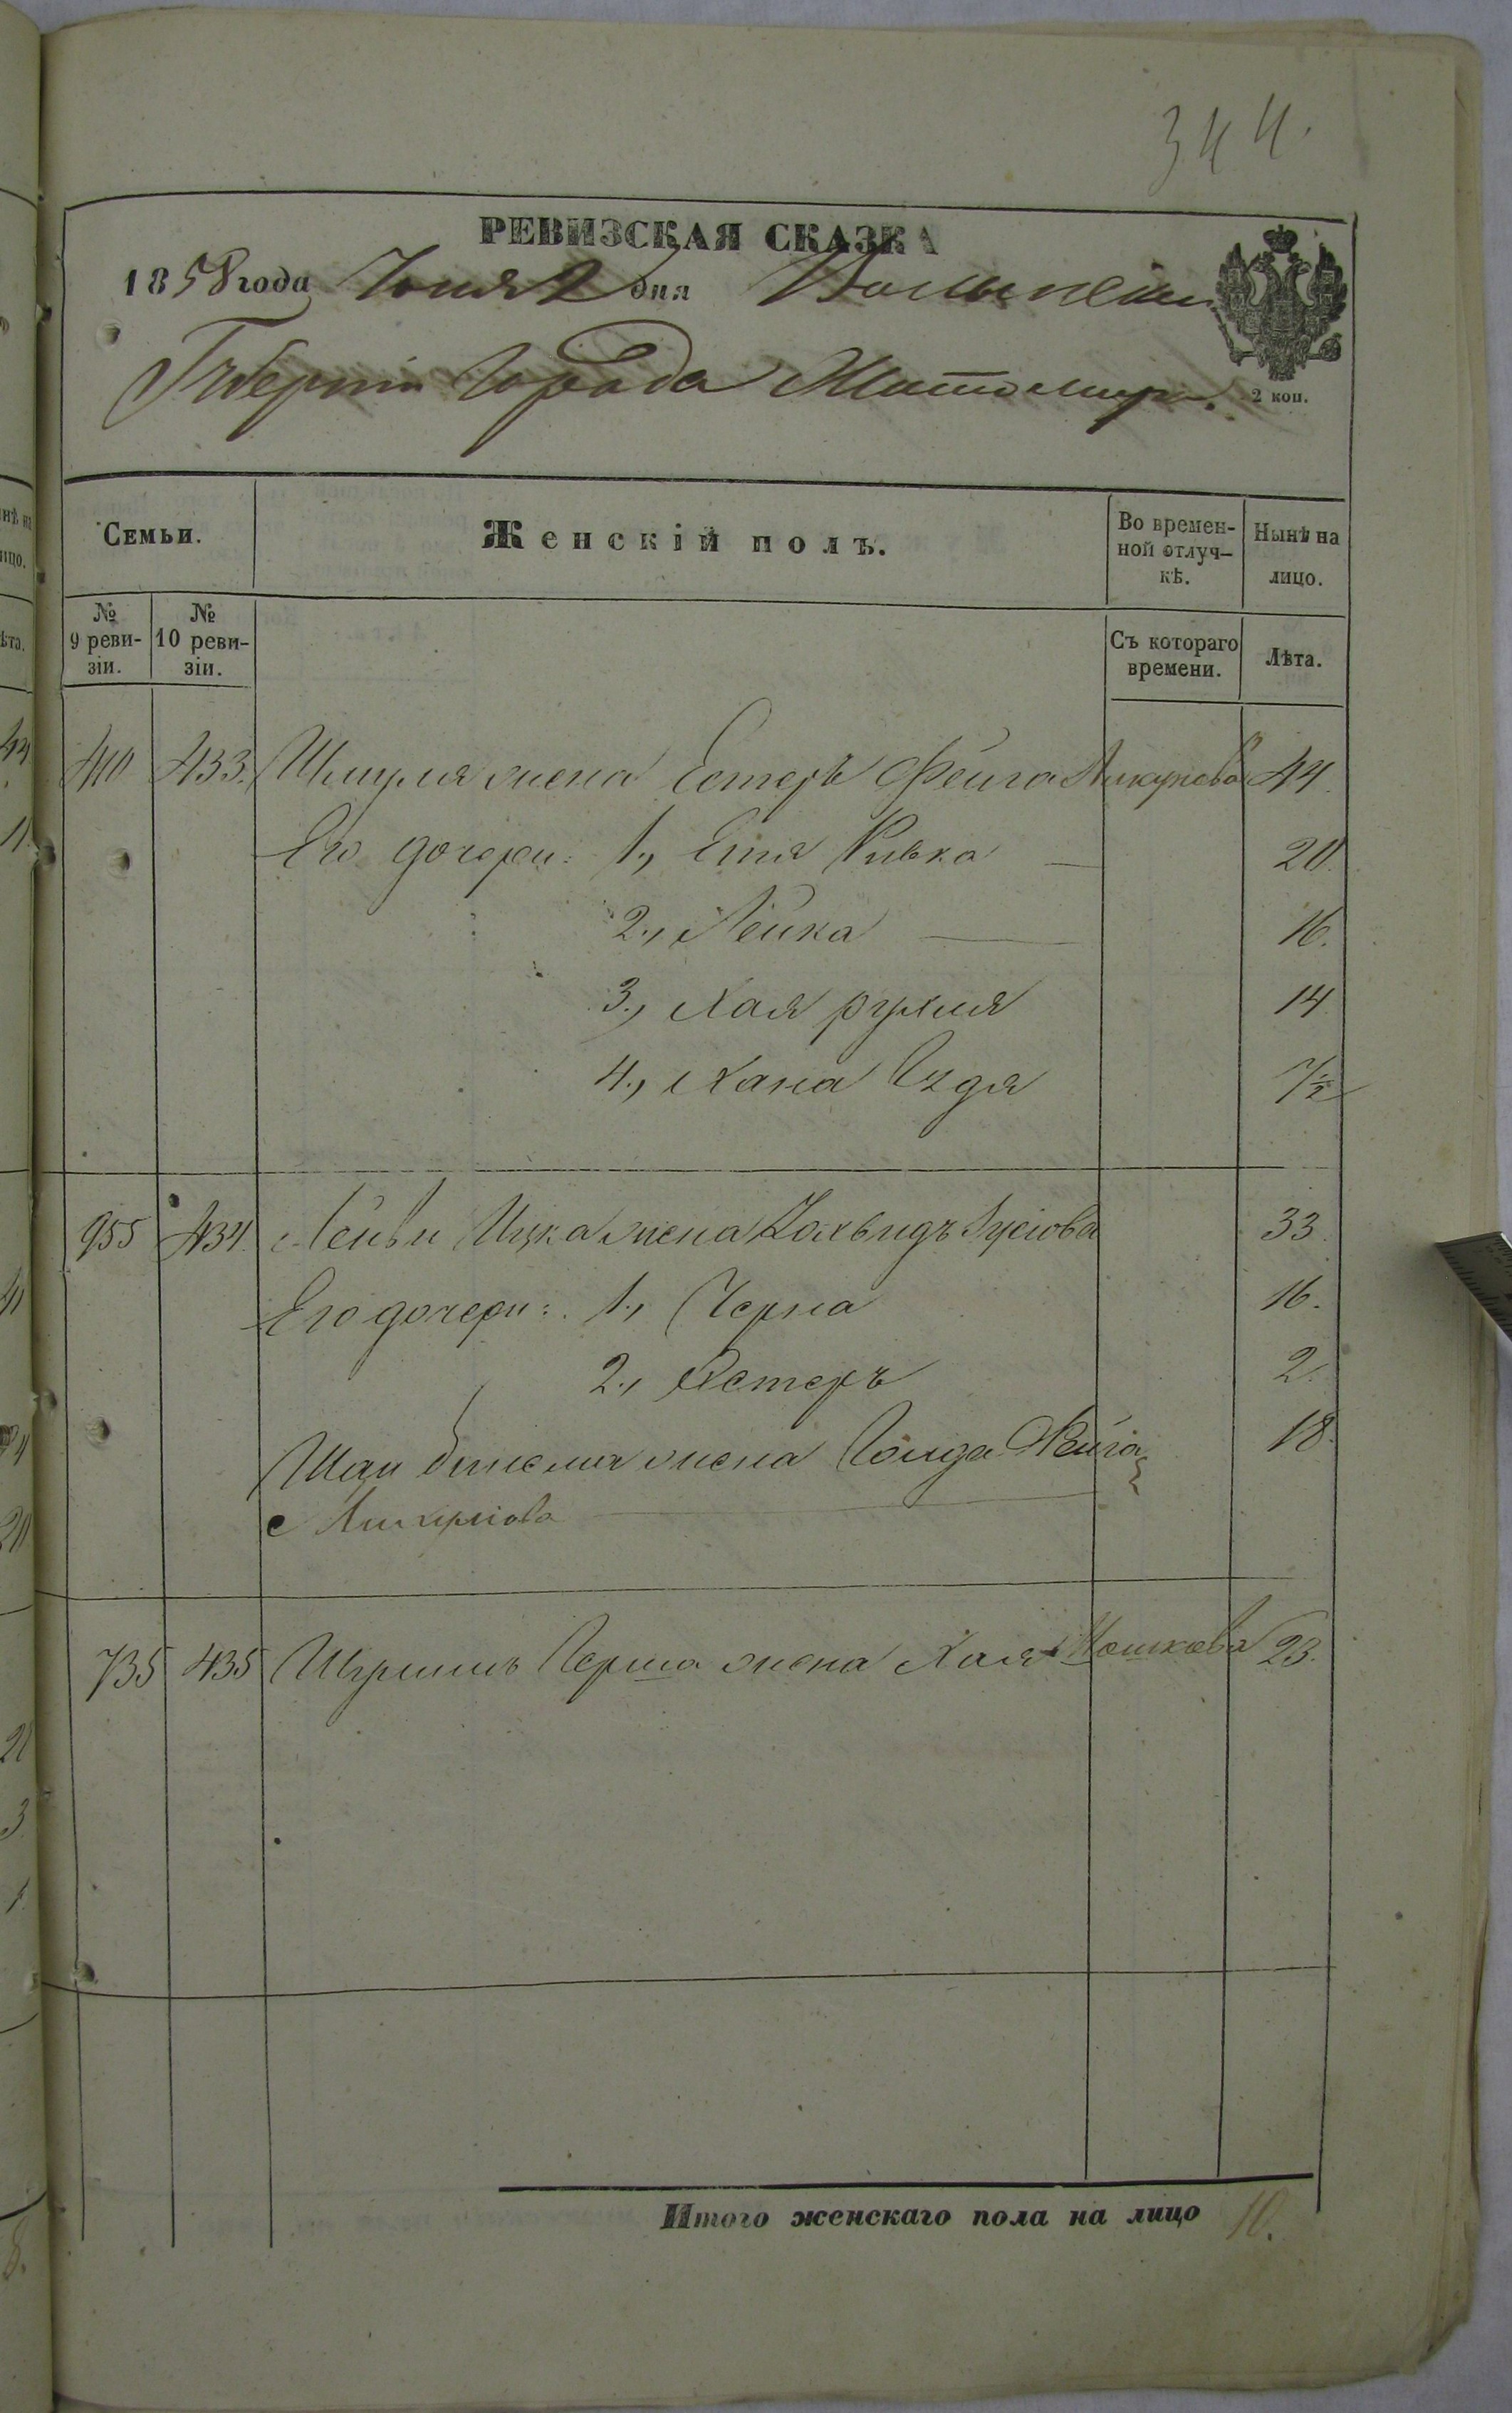 344.
РЕВИЗСКАЯ СКАЗКА
1858 года Іюня 2 дня Волынской
2 коп.
Губерніи Города Житомира.
Семьи. Женскій полъ. Во времен-ной отлуч-кѣ. Нынѣ на лицо.
№ 9 реви-зіи. № 10 реви-зіи. Съ котораго времени. Лѣта.
410 433. Шмуля жена Естеръ Фейга 44.
Его дочери: 1., Етя Ривка 20.
2., Лейка 16.
3., Хая рухля 14
4., Хана 1/2
955 434. Лейви Ицка жена 33.
Его дочери: 1., Черна 16.
2., Естеръ 2.
жена Голда Фейга 18.
735 435 Герша жена Хая Мошкова 23.
Итого женскаго пола на лицо 10.